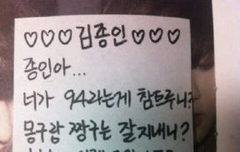 ♡♡♡김종인♡♡♡
종인아...
너가 94라는게 참트루니?
몽구랑 짱구는 잘지내니?